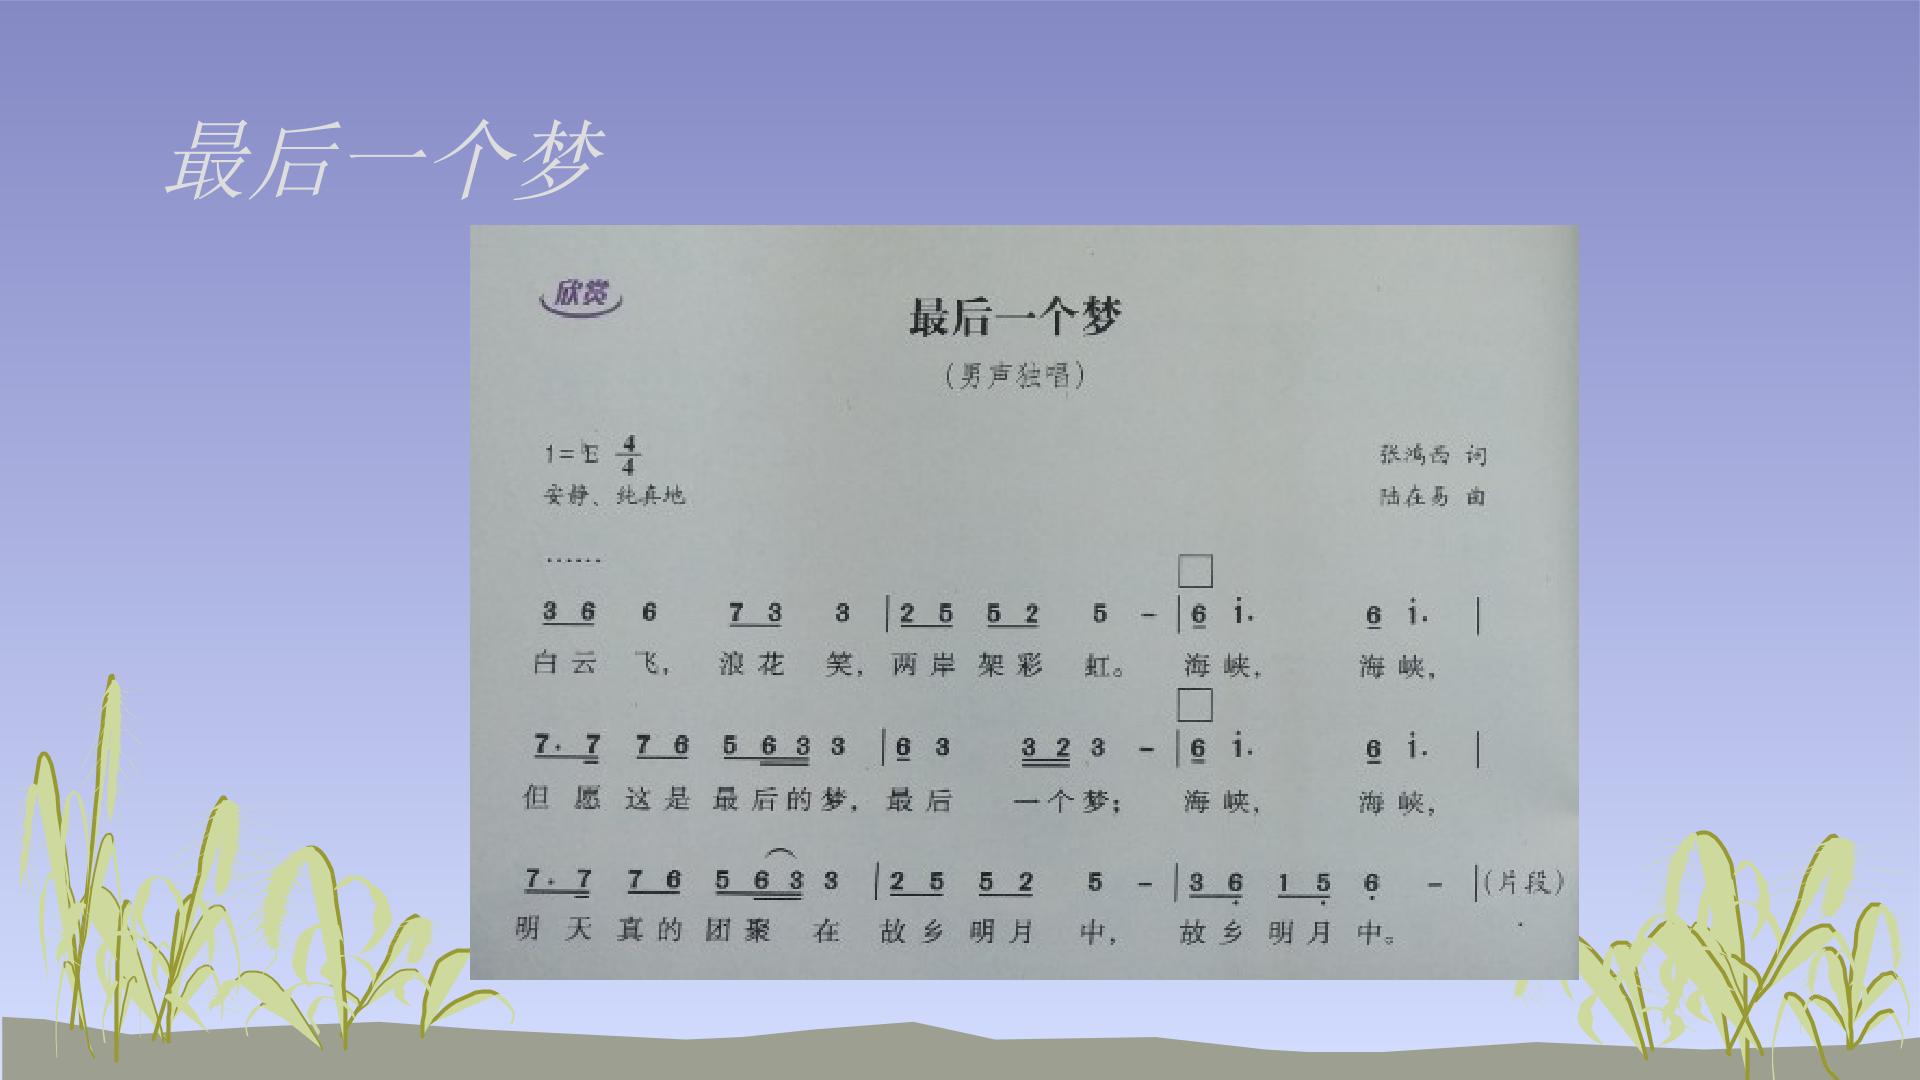 最后一个梦
欣赏
最后一个梦
(男声独唱)
1=♭E 4/4
张鸿西 词
安静、纯真地
陆在易 曲
······
3 6 6 7 3 3 | 2 5 5 2 5 - | 6 i. 6 i. |
白云 飞, 浪花 笑, 两岸 架彩 虹。 海峡, 海峡,
7. 7 7 6 5 6 3 3 | 6 3 3 2 3 - | 6 i. 6 i. |
但愿 这是 最后的梦, 最后 一个梦; 海峡, 海峡,
7. 7 7 6 5 6 3 3 | 2 5 5 2 5 - | 3 6 1 5 6 - | (片段)
明天 真的 团聚 在 故乡 明月 中, 故乡 明月 中。